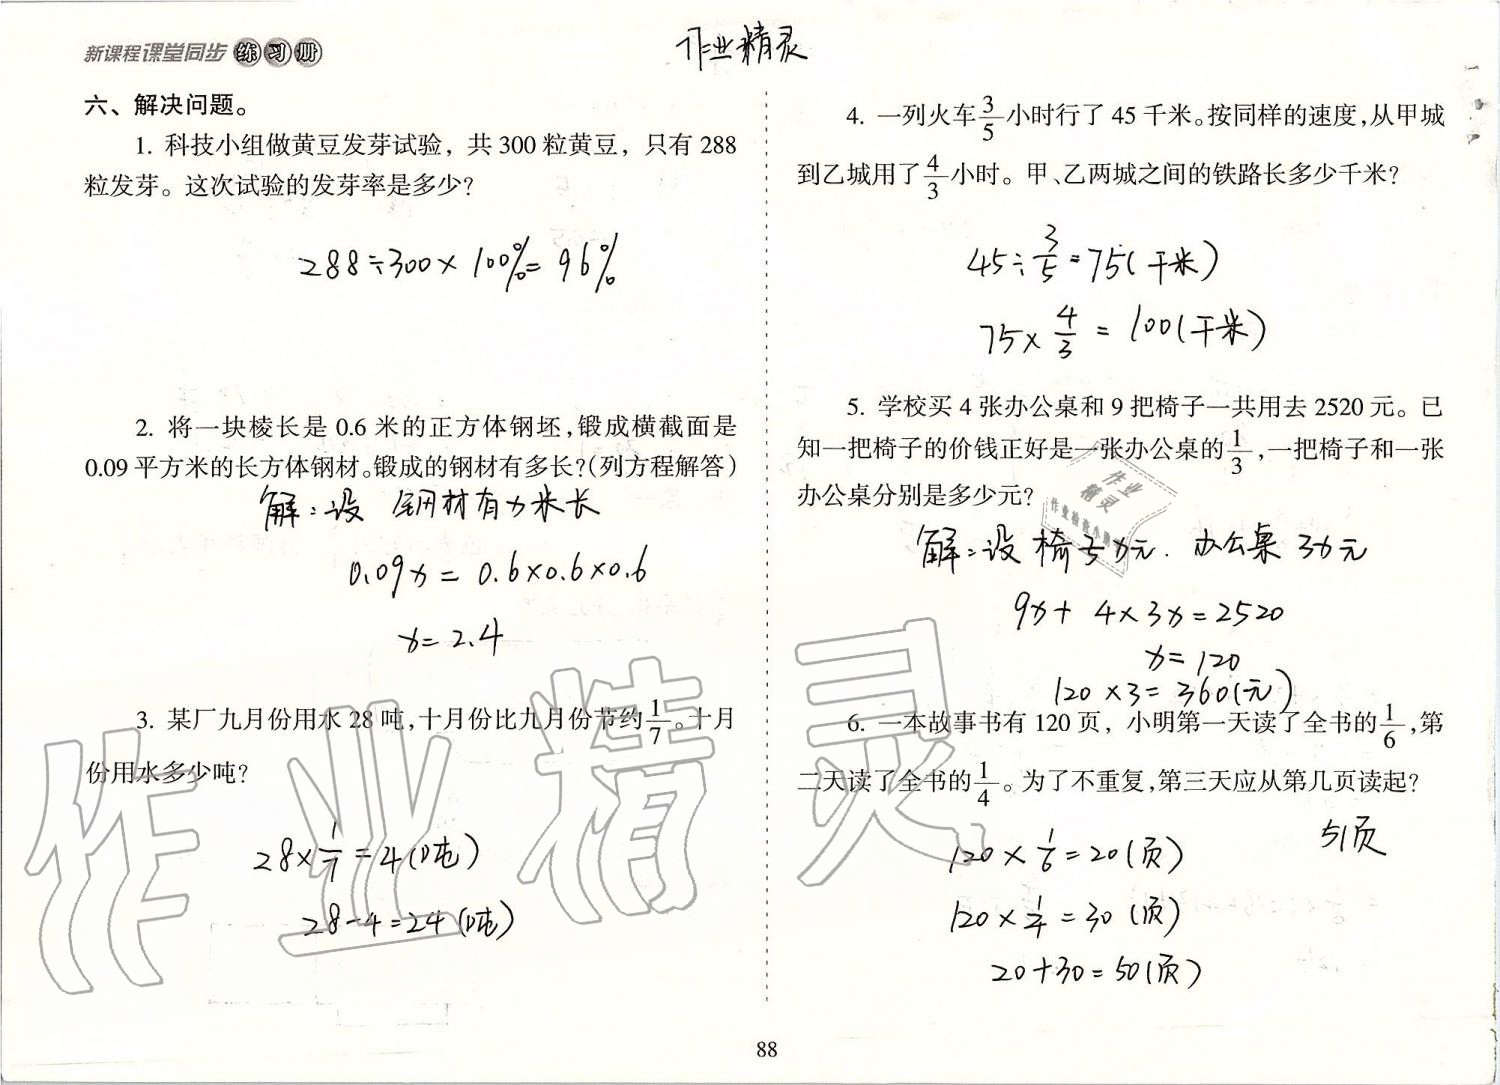 新课程课堂同步练习册
作业精灵
六、解决问题。
1. 科技小组做黄豆发芽试验，共 300 粒黄豆，只有 288
粒发芽。这次试验的发芽率是多少？
288÷300×100%=96%
2. 将一块棱长是 0.6 米的正方体钢坯，锻成横截面是
0.09 平方米的长方体钢材。锻成的钢材有多长？（列方程解答）
解：设 钢材有x米长
0.09x=0.6×0.6×0.6
x=2.4
3. 某厂九月份用水 28 吨，十月份比九月份节约1/7。十月
份用水多少吨？
28×1/7=4(吨)
28-4=24(吨)
4. 一列火车3/5小时行了 45 千米。按同样的速度，从甲城
到乙城用了4/3小时。甲、乙两城之间的铁路长多少千米？
45÷3/5=75(千米)
75×4/3=100(千米)
5. 学校买 4 张办公桌和 9 把椅子一共用去 2520 元。已
知一把椅子的价钱正好是一张办公桌的1/3，一把椅子和一张
办公桌分别是多少元？
作业
精灵
解：设椅子x元．办公桌 3x元
9x+4×3x=2520
x=120
120×3=360(元)
6. 一本故事书有 120 页，小明第一天读了全书的1/6，第
二天读了全书的1/4。为了不重复，第三天应从第几页读起？
51页
120×1/6=20(页)
120×1/4=30(页)
20+30=50(页)
作业精灵
88